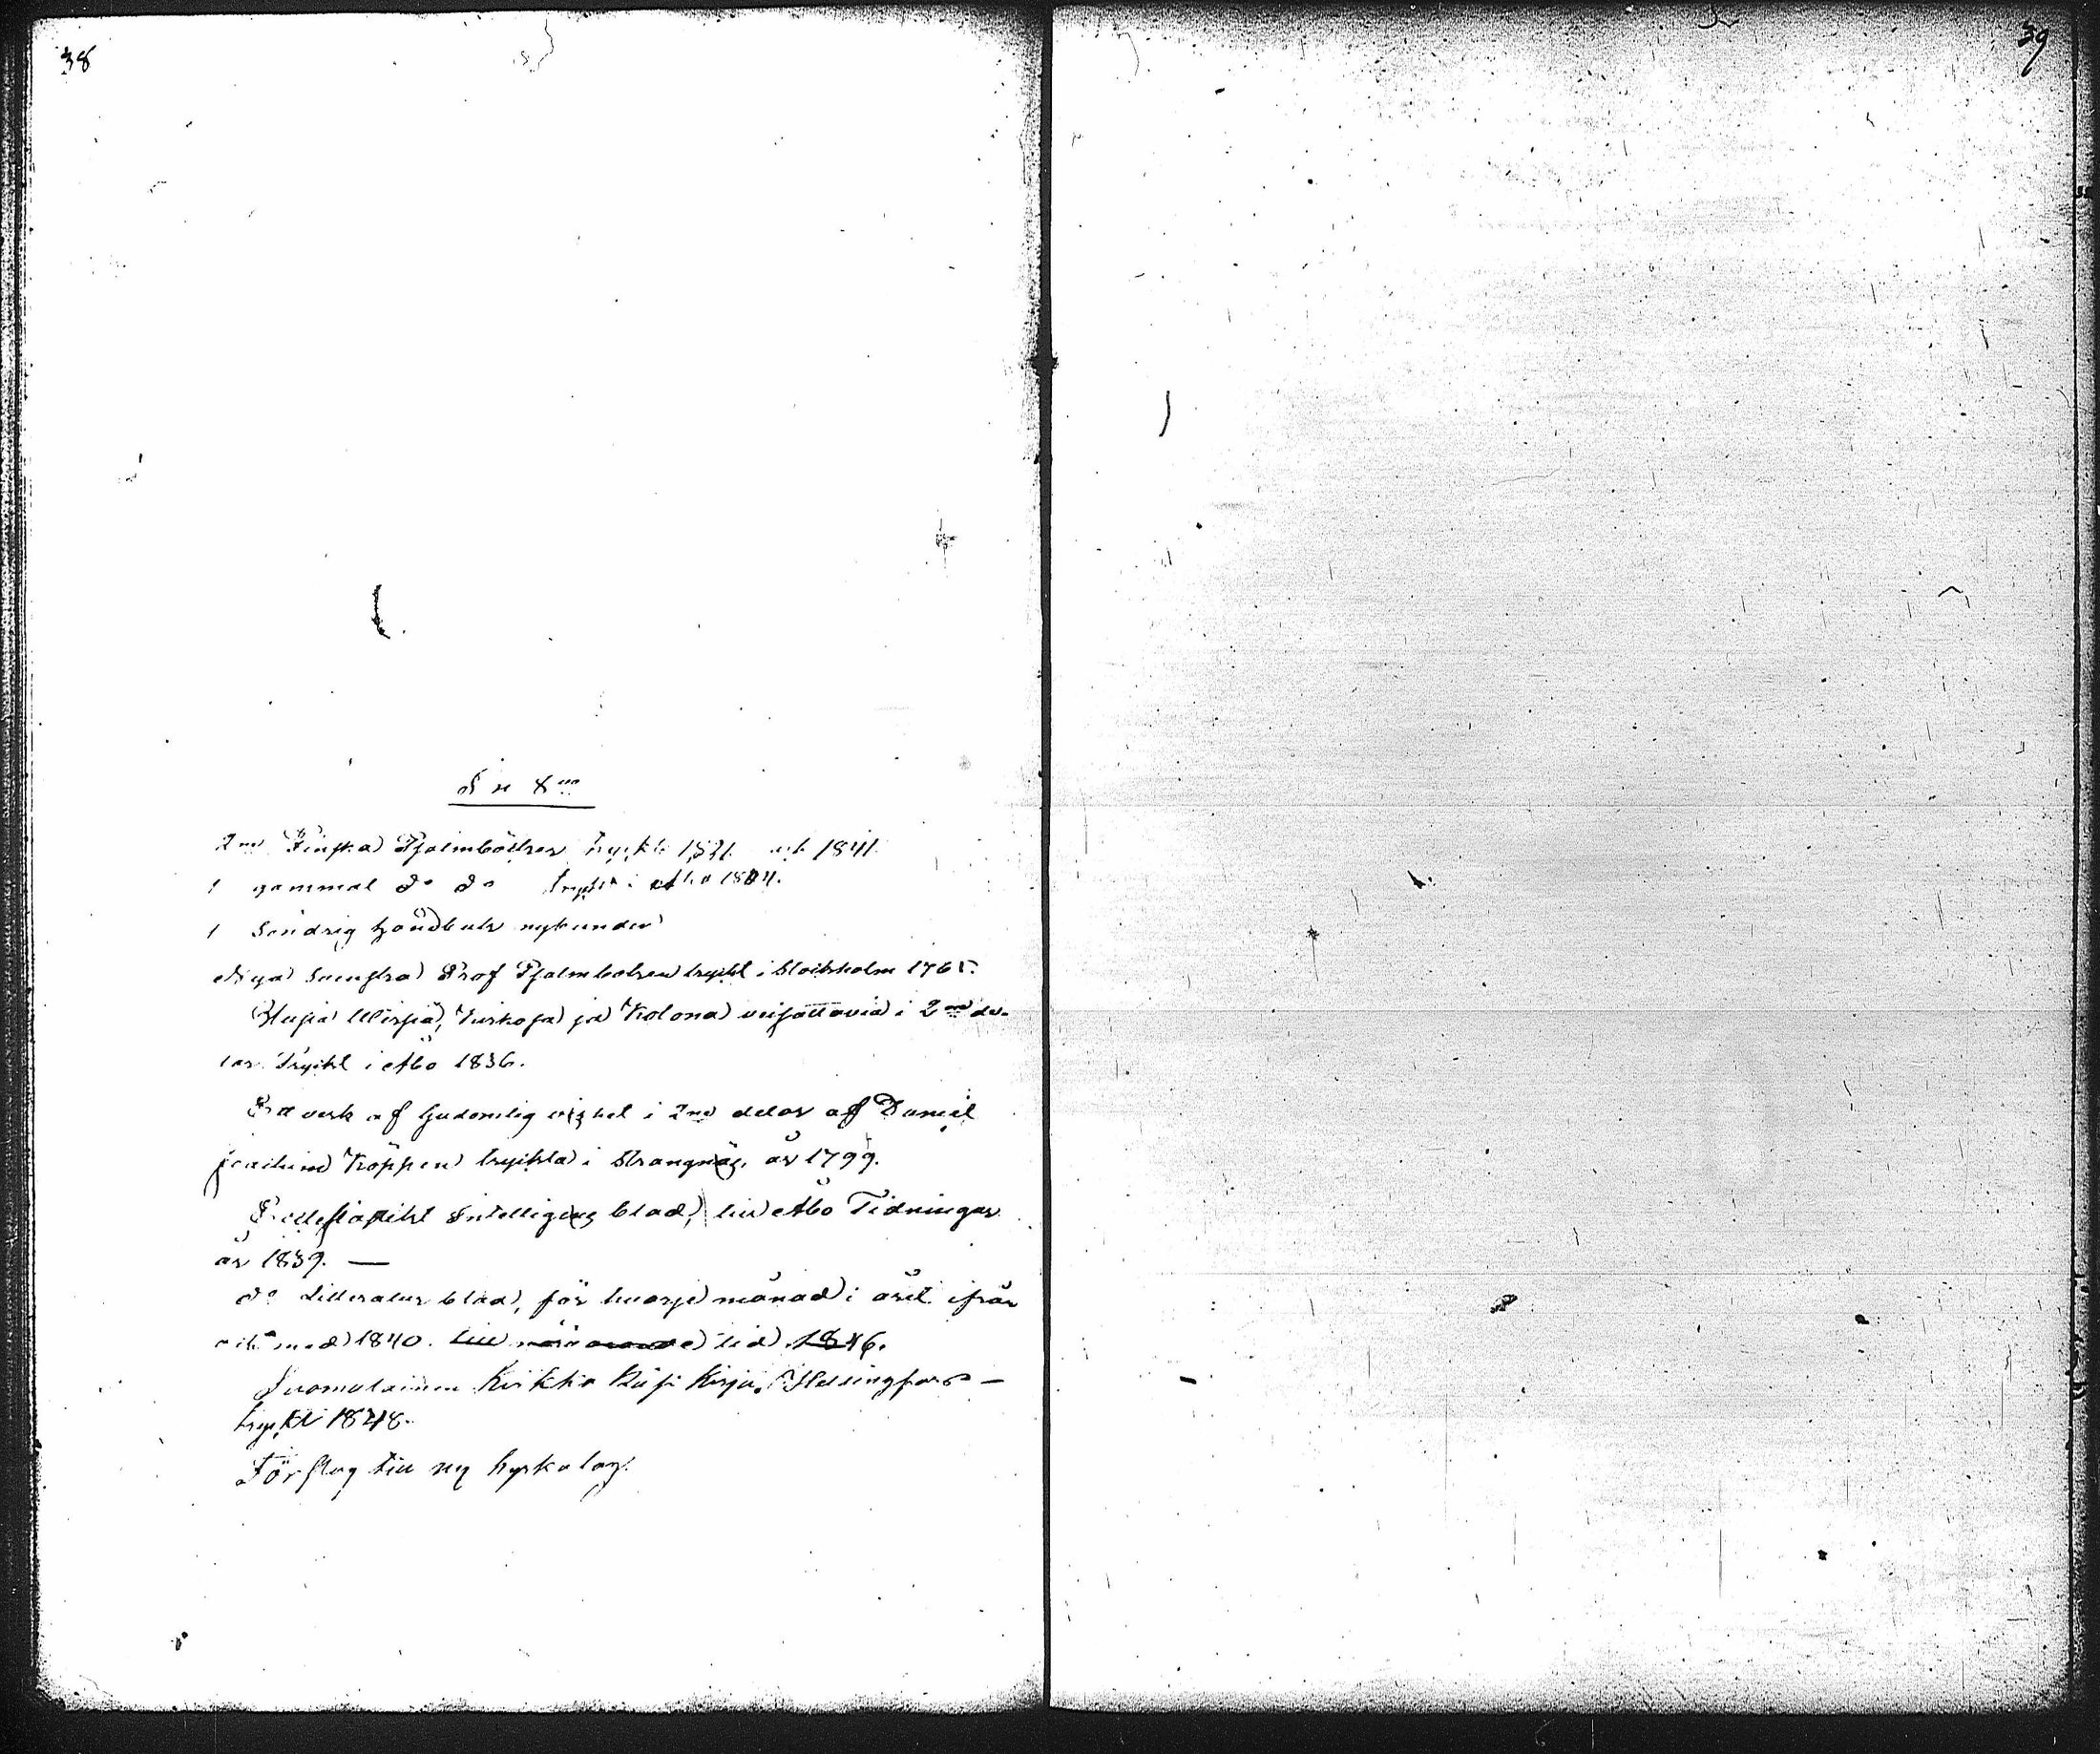 38
39
In 8vo
2ne Finska Psalmböcker tryckt 1831. och 1841.
1 gammal do do tryckt i Åbo 1804.
1 söndrig handbok
Nya Svenska Prof Psalmboken tryckt i Stockholm 1765.
Uusia Wirsiä, Kirkosa ja Kotona veisattavia i 2ne de-
lar. Tryckt i Åbo 1836.
verk af Gudomlig vishet i 2ne delar af Daniel
Joachim Köppen tryckta i Strängnäs, år 1799.
Ecclesiastikt Intelligens blad, till Åbo Tidningar
år 1839. —
do Litteratur blad, för hvarje månad i året ifrån
och med 1840. till närvarande tid 1846.
Suomalainen Kirkko Käsi Kirja, Helsingfors —
tryckt 1848.
Förslag till ny kyrkolag.